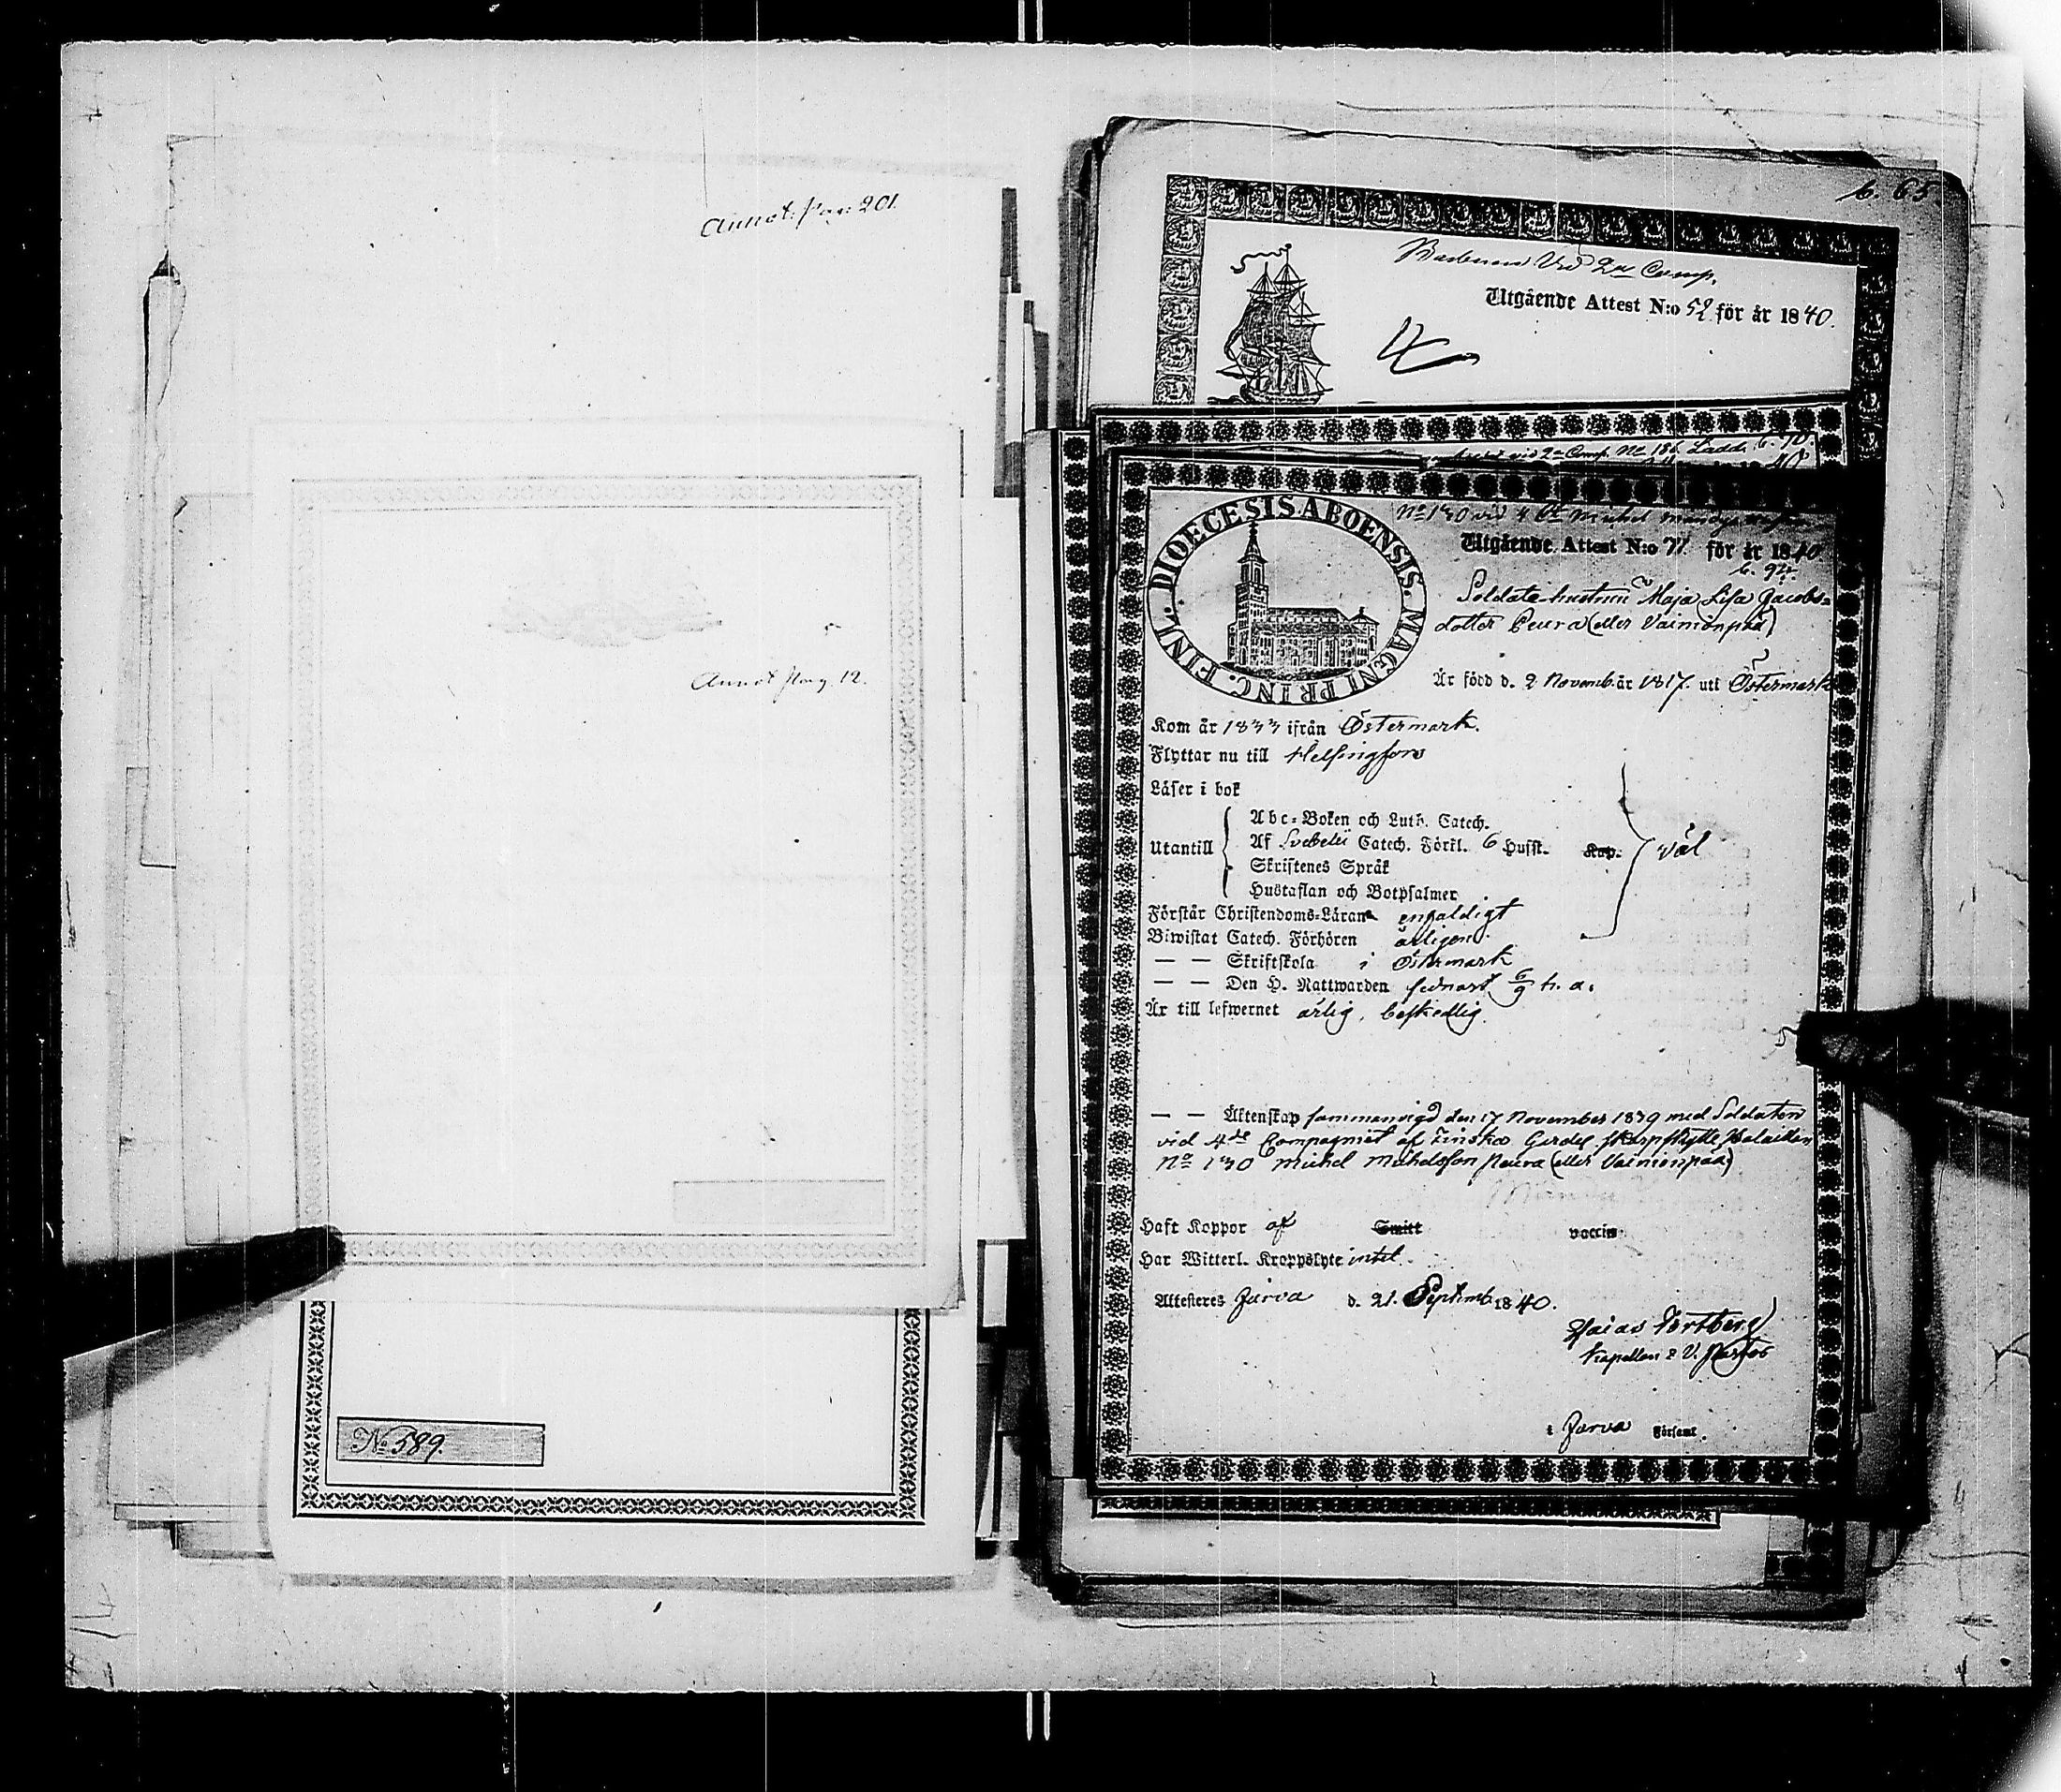 Annot. Pag: 201.
Annot Pag. 12.
No 589.
b. 65
Vid 2a Comp.
Utgående Attest N:o 52 för år 1840.
vid 2a Comp. No 186 Ladd. b. 70.
40
No 130 vid 4 Michel
DIOECESIS ABOENSIS. MAGNI PRINC. FINL.
Utgående Attest N:o 77 för år 1840
b. 94.
Soldats hustrun Maja Lisa Jacobs=
dotter Peura (eller Vainionpää)
Är född d. 2 Novemb. år 1817. uti Östermark
Kom år 1833 ifrån Östermark.
Flyttar nu till Helsingfors
Läser i bok
Abc-Boken och Luth. Catech.
Utantill Af Svebelii Catech. Förkl. 6 Hufst. Kap. väl
Skriftenes Språk
Hustaflan och Botpsalmer
Förstår Christendoms-Läran enfaldigt
Biwistat Catech. Förhören årligen.
— — Skriftskola i Östermark
— — Den H. Nattwarden sednast 6/9 h. a.
Är till lefwernet ärlig, beskedlig.
— — Äktenskap sammanvigd den 17 November 1839 med Soldaten
vid 4de Compagniet af Finska Gardes Skarpskytte Bataillon
No 130 Michel Michelsson Peura (eller Vainionpää)
Haft Koppor af Smitt vaccin
Har Witterl. Kroppslyte intet.
Attesteras Jurva d. 21. Septemb. 1840.
Esaias Hertberg
Kapellan & V. Pastor
i Jurva Församl.